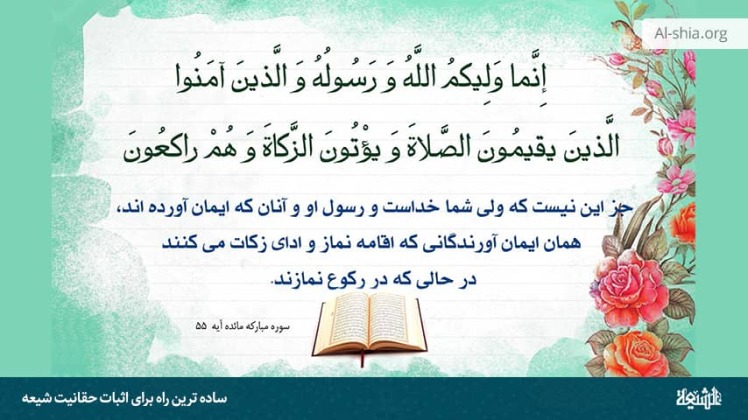 Al-shia.org
إِنَّما وَلِيكمُ اللَّهُ وَ رَسُولُهُ وَ الَّذينَ آمَنُوا
الَّذينَ يقيمُونَ الصَّلاةَ وَ يؤْتُونَ الزَّكاةَ وَ هُمْ راكعُونَ
جز این نیست که ولی شما خداست و رسول او و آنان که ایمان آورده اند،
همان ایمان آورندگانی که اقامه نماز و ادای زکات می کنند
در حالی که در رکوع نمازند.
سوره مبارکه مائده آیه ۵۵
ساده ترین راه برای اثبات حقانیت شیعه
الشیعة